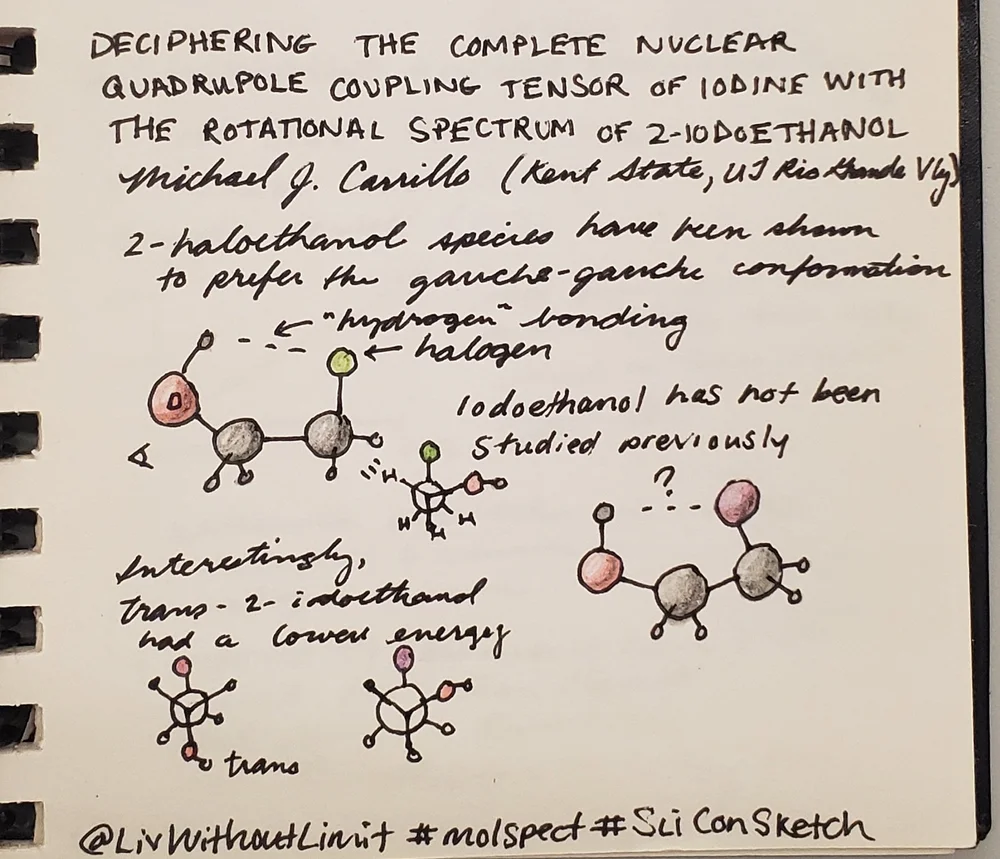 DECIPHERING THE COMPLETE NUCLEAR
QUADRUPOLE COUPLING TENSOR OF IODINE WITH
THE ROTATIONAL SPECTRUM OF 2-IODOETHANOL
Michael J. Carrillo (Kent State, UT Rio Grande Vly)
2-haloethanol species have been shown
to prefer the gauche-gauche conformation
← "hydrogen" bonding
← halogen
O
Iodoethanol has not been
studied previously
H
H H
H
?
Interestingly,
trans-2-iodoethanol
had a lower energy
trans
@LivWithoutLimit #molspect #SciConSketch